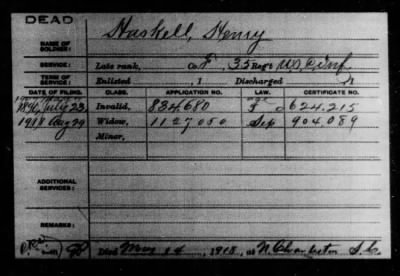 DEAD
NAME OF SOLDIER: Haskell, Henry
SERVICE: Late rank, Co. F, 35 Reg't U.S.C. Inf.
TERM OF SERVICE: Enlisted , 1 Discharged , 1
DATE OF FILING. CLASS. APPLICATION NO. LAW. CERTIFICATE NO.
July 23 Invalid, 834.680 624.215
1918 Aug 29 Widow, 1127050 904.089
Minor,
ADDITIONAL SERVICES:
REMARKS:
Died 14, 1918, at N. Charleston S.C.